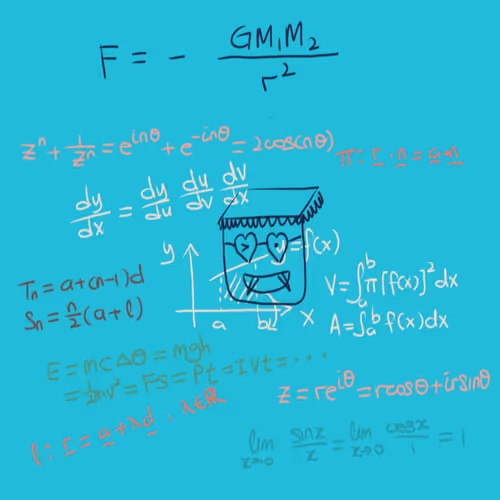 F = - GM₁M₂ / r²
zⁿ + 1/zⁿ = e^(inθ) + e^(-inθ) = 2cos(nθ)
π: r · n = a · n
dy/dx = dy/du du/dv dv/dx
y
y=f(x)
a
b
x
Tₙ = a+(n-1)d
Sₙ = n/2 (a+l)
V=∫ₐᵇ π[f(x)]² dx
A=∫ₐᵇ f(x)dx
E = mcΔθ = mgh
= ½mv² = Fs = Pt = IVt = ...
z = re^(iθ) = rcosθ + irsinθ
l: r = a + λd , λ∈ℝ
lim x→0 sinx/x = lim x→0 cosx/1 = 1